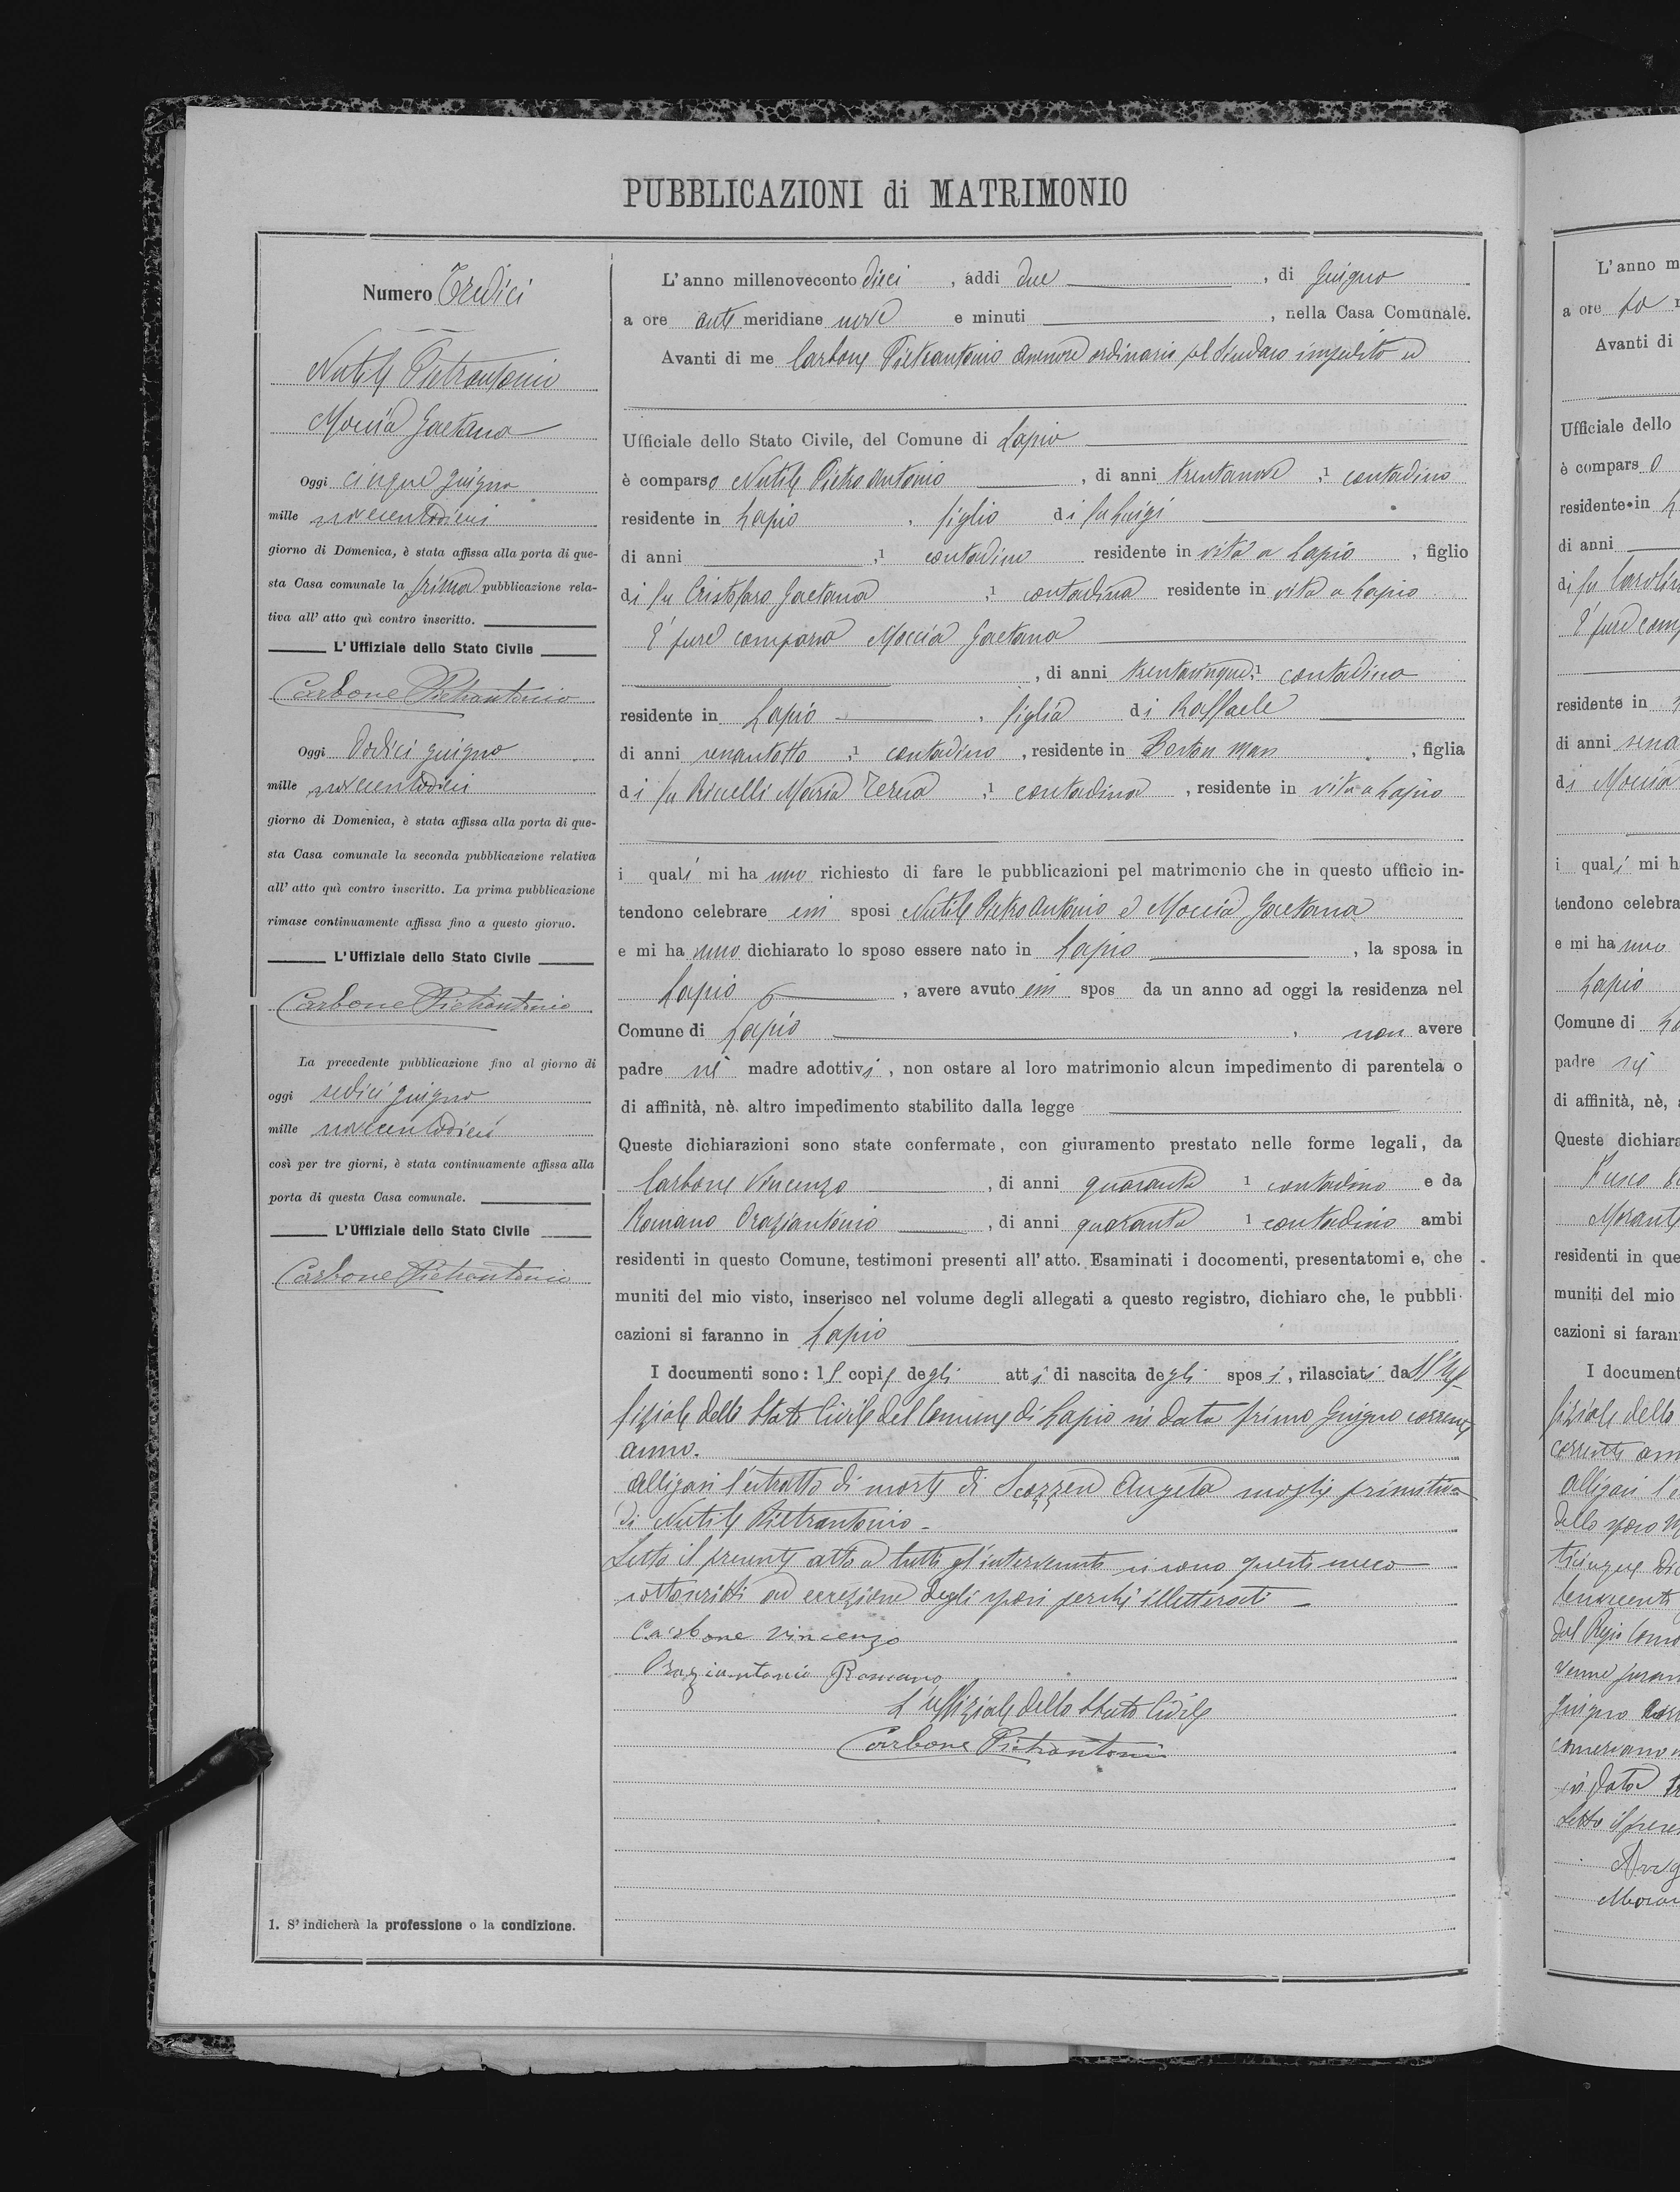 PUBBLICAZIONI di MATRIMONIO
Numero Tredici
Nutile Pietrantonio
Moccia Gaetana
Oggi cinque giugno
mille novecentodieci
giorno di Domenica, è stata affissa alla porta di que-
sta Casa comunale la prima pubblicazione rela-
tiva all' atto quì contro inscritto.
L' Uffiziale dello Stato Civile
Carbone Pietrantonio
Oggi dodici giugno
mille novecentodieci
giorno di Domenica, è stata affissa alla porta di que-
sta Casa comunale la seconda pubblicazione relativa
all' atto quì contro inscritto. La prima pubblicazione
rimase continuamente affissa fino a questo giorno.
L' Uffiziale dello Stato Civile
Carbone Pietrantonio
La precedente pubblicazione fino al giorno di
oggi sedici giugno
mille novecentodieci
così per tre giorni, è stata continuamente affissa alla
porta di questa Casa comunale.
L' Uffiziale dello Stato Civile
Carbone Pietrantonio
1. S' indicherà la professione o la condizione.
L' anno millenovecento dieci , addi due , di Giugno
a ore anti meridiane nove e minuti , nella Casa Comunale.
Avanti di me Carbone Pietrantonio assessore ordinario pel Sindaco impedito ed
Ufficiale dello Stato Civile, del Comune di Lapio
è comparso Nutile Pietro Antonio , di anni trentanove , 1 contadino
residente in Lapio , figlio di fu Luigi
di anni , 1 contadino residente in vita a Lapio , figlio
di fu Cristofaro Gaetana , 1 contadina residente in vita a Lapio
E' pure comparsa Moccia Gaetana
, di anni trentacinque , 1 contadina
residente in Lapio , figlia di Raffaele
di anni sessantotto , 1 contadino , residente in Boston man , figlia
di fu Maria Teresa , 1 contadina , residente in vita a Lapio
i quali mi hanno richiesto di fare le pubblicazioni pel matrimonio che in questo ufficio in-
tendono celebrare essi sposi Nutile Pietro Antonio e Moccia Gaetana
e mi hanno dichiarato lo sposo essere nato in Lapio , la sposa in
Lapio , avere avuto essi spos da un anno ad oggi la residenza nel
Comune di Lapio , non avere
padre nè madre adottivi , non ostare al loro matrimonio alcun impedimento di parentela o
di affinità, nè. altro impedimento stabilito dalla legge
Queste dichiarazioni sono state confermate, con giuramento prestato nelle forme legali, da
Carbone Vincenzo , di anni quaranta 1 contadino e da
Romano Oraziantonio , di anni quaranta 1 contadino ambi
residenti in questo Comune, testimoni presenti all' atto. Esaminati i documenti, presentatomi e, che
muniti del mio visto, inserisco nel volume degli allegati a questo registro, dichiaro che, le pubbli-
cazioni si faranno in Lapio
I documenti sono: le copie degli atti di nascita degli sposi , rilasciati dall'Uf-
fiziale dello Stato Civile del Comune di Lapio in data primo Giugno corrente
anno.
Alligasi l'estratto di morte di Angela moglie primitiva
di Nutile Pietrantonio -
Letto il presente atto a tutti gl'intervenuti si sono questi meco
sottoscritti ad eccezione degli sposi perchè illetterati -
Carbone Vincenzo
Oraziantonio Romano
L'uffiziale dello Stato Civile
Carbone Pietrantonio
L' anno m
a ore
Avanti di
Ufficiale dello
è compars o
residente in
di anni
di fu
E' pure comp
residente in
di anni
di Moccia
i quali mi h
tendono celebra
e mi hanno
Lapio
Comune di
padre nè
di affinità, nè,
Queste dichiara
Fusco
residenti in que
muniti del mio
cazioni si faran
I document
fiziale dello